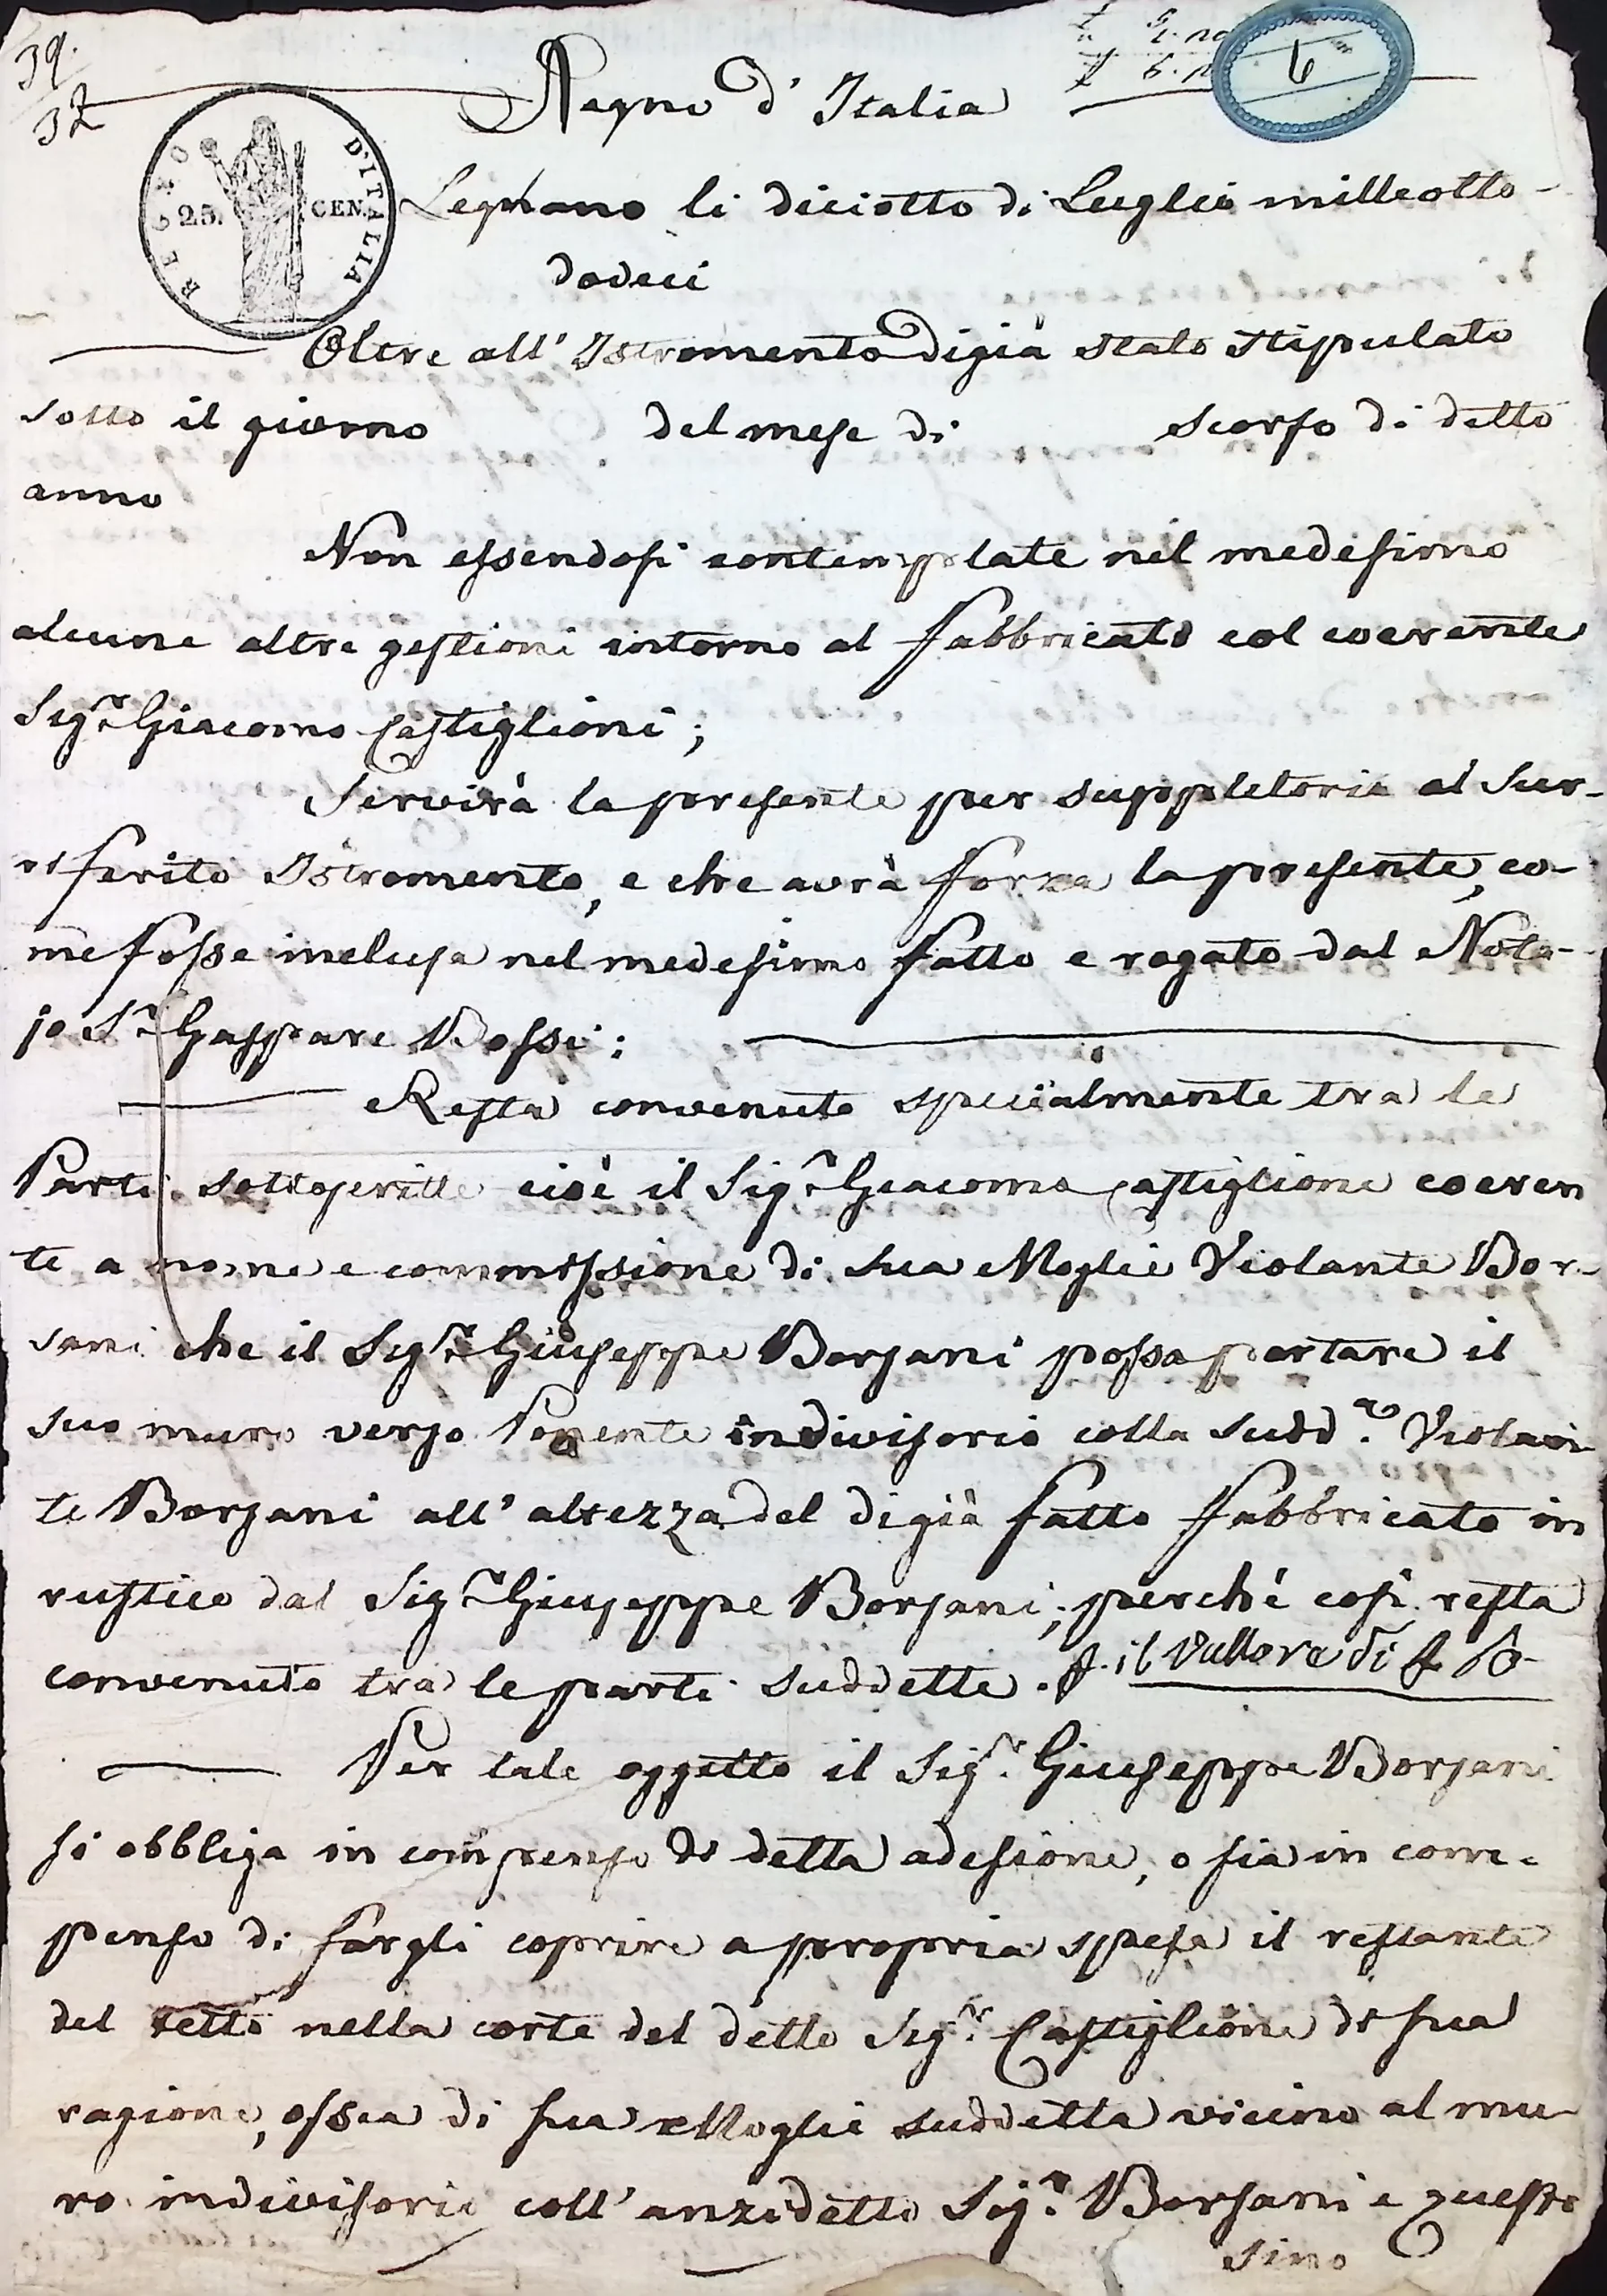 39.
32
6
Regno d'Italia
REGNO D'ITALIA
25. CEN.
Legnano li diciotto di Luglio milleotto-
dodeci
Oltre all'Istromento digià stato stipulato
sotto il giorno del mese di scorso di detto
anno
Non essendosi contemplate nel medesimo
alcune altre gestioni intorno al fabbricato col coerente
Sig.r Giacomo Castiglioni;
Servirà la presente per suppletoria al sur-
riferito Istromento, e che avrà forza la presente, co-
me fosse inclusa nel medesimo fatto e rogato dal Nota-
jo S.r Gaspare Bossi:
Resta convenuto specialmente tra le
Parti sottoscritte cioè il Sig.r Giacomo Castiglione coeren
te a nome e commissione di sua Moglie Violante Bor-
sani che il Sig.r Giuseppe Borsani possa portare il
suo muro verso Ponente indivisorio colla sudd.a Violan
te Borsani all'altezza del digià fatto fabbricato in
rustico dal Sig.r Giuseppe Borsani; perché così resta
convenuto tra le parti suddette. il Vallore di
Per tale oggetto il Sig.r Giuseppe Borsani
si obbliga in compenso di detta adesione, o sia in com-
penso di fargli coprire a propria spesa il restante
del tetto nella corte del detto Sig.r Castiglione di sua
ragione, ossea di sua Moglie suddetta vicino al mu-
ro indivisorio coll'anzidetto Sig.r Borsani e questo
sino